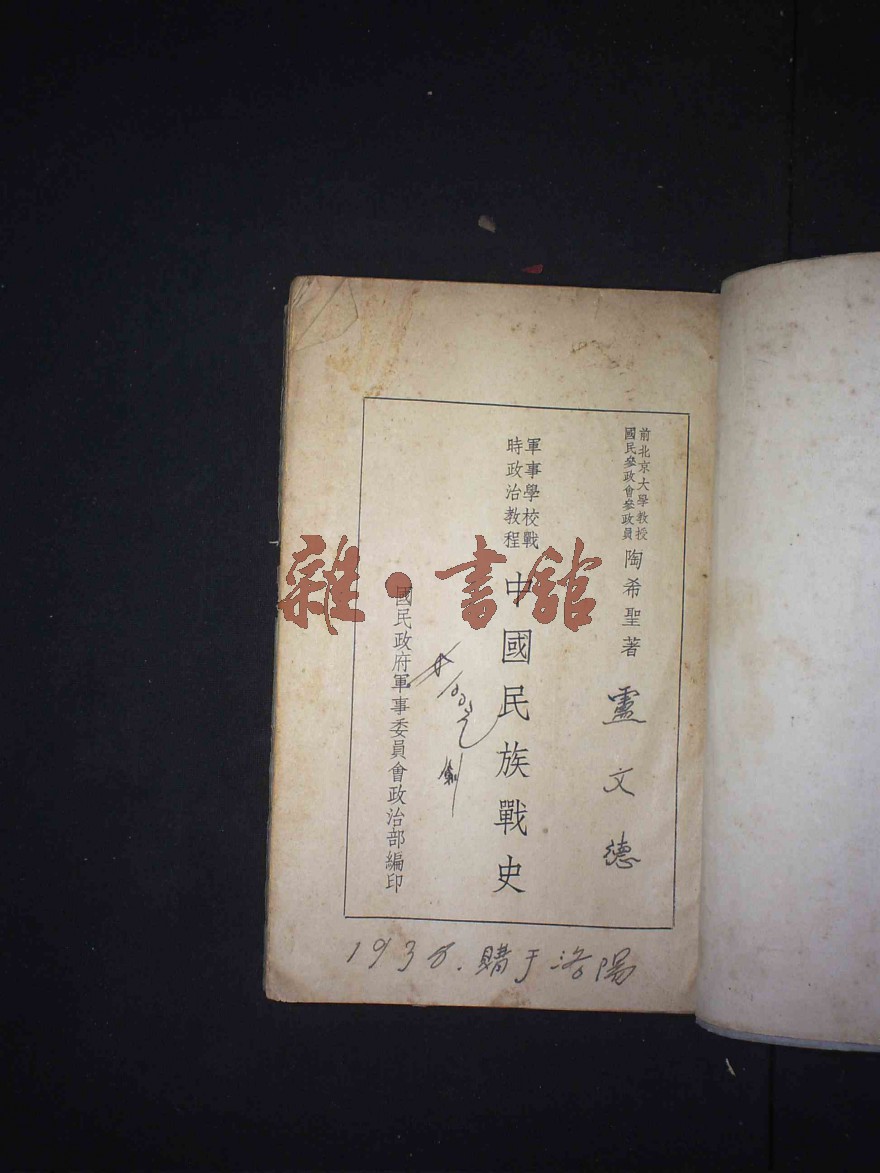 前北京大學教授
國民參政會參政員
陶希聖著
盧文德
軍事學校戰
時政治教程
中國民族戰史
國民政府軍事委員會政治部編印
1938.購于洛陽
雜·書館